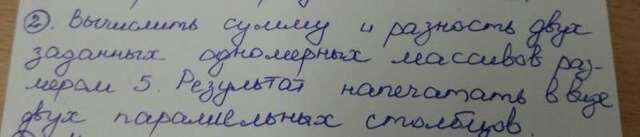 2. Вычислить сумму и разность двух
заданных одномерных массивов раз-
мером 5. Результат напечатать в виде
двух параллельных столбцов.